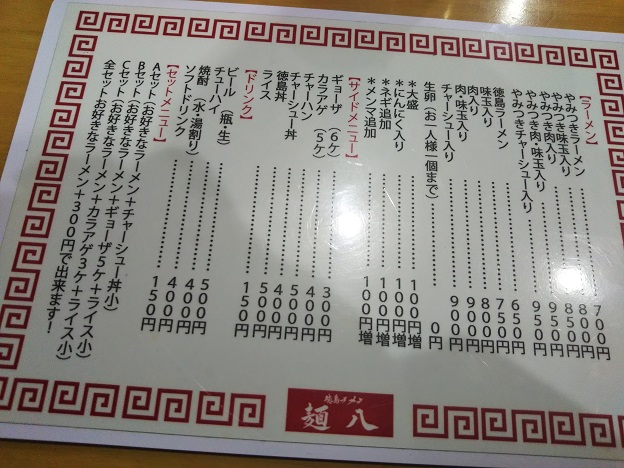 【ラーメン】
やみつきラーメン………700円
やみつき味玉入り………800円
やみつき肉入り………850円
やみつき肉・味玉入り………950円
やみつきチャーシュー入り………950円
徳島ラーメン………650円
味玉入り………750円
肉入り………800円
肉・味玉入り………900円
チャーシュー入り………900円
生卵(お一人様一個まで)………0円
*大盛………100円増
*にんにく入り………100円増
*ネギ追加………100円増
*メンマ追加………100円増
【サイドメニュー】
ギョーザ(6ケ)………300円
カラアゲ(5ケ)………400円
チャーハン………400円
チャーシュー丼………500円
徳島丼………500円
ライス………150円
【ドリンク】
ビール(瓶・生)………500円
チューハイ………400円
焼酎(水・湯割り)………400円
ソフトドリンク………150円
【セットメニュー】
Aセット(お好きなラーメン+チャーシュー丼小)
Bセット(お好きなラーメン+ギョーザ5ケ+ライス小)
Cセット(お好きなラーメン+カラアゲ3ケ+ライス小)
全セットお好きなラーメン+300円で出来ます!
徳島ラーメン
麺八